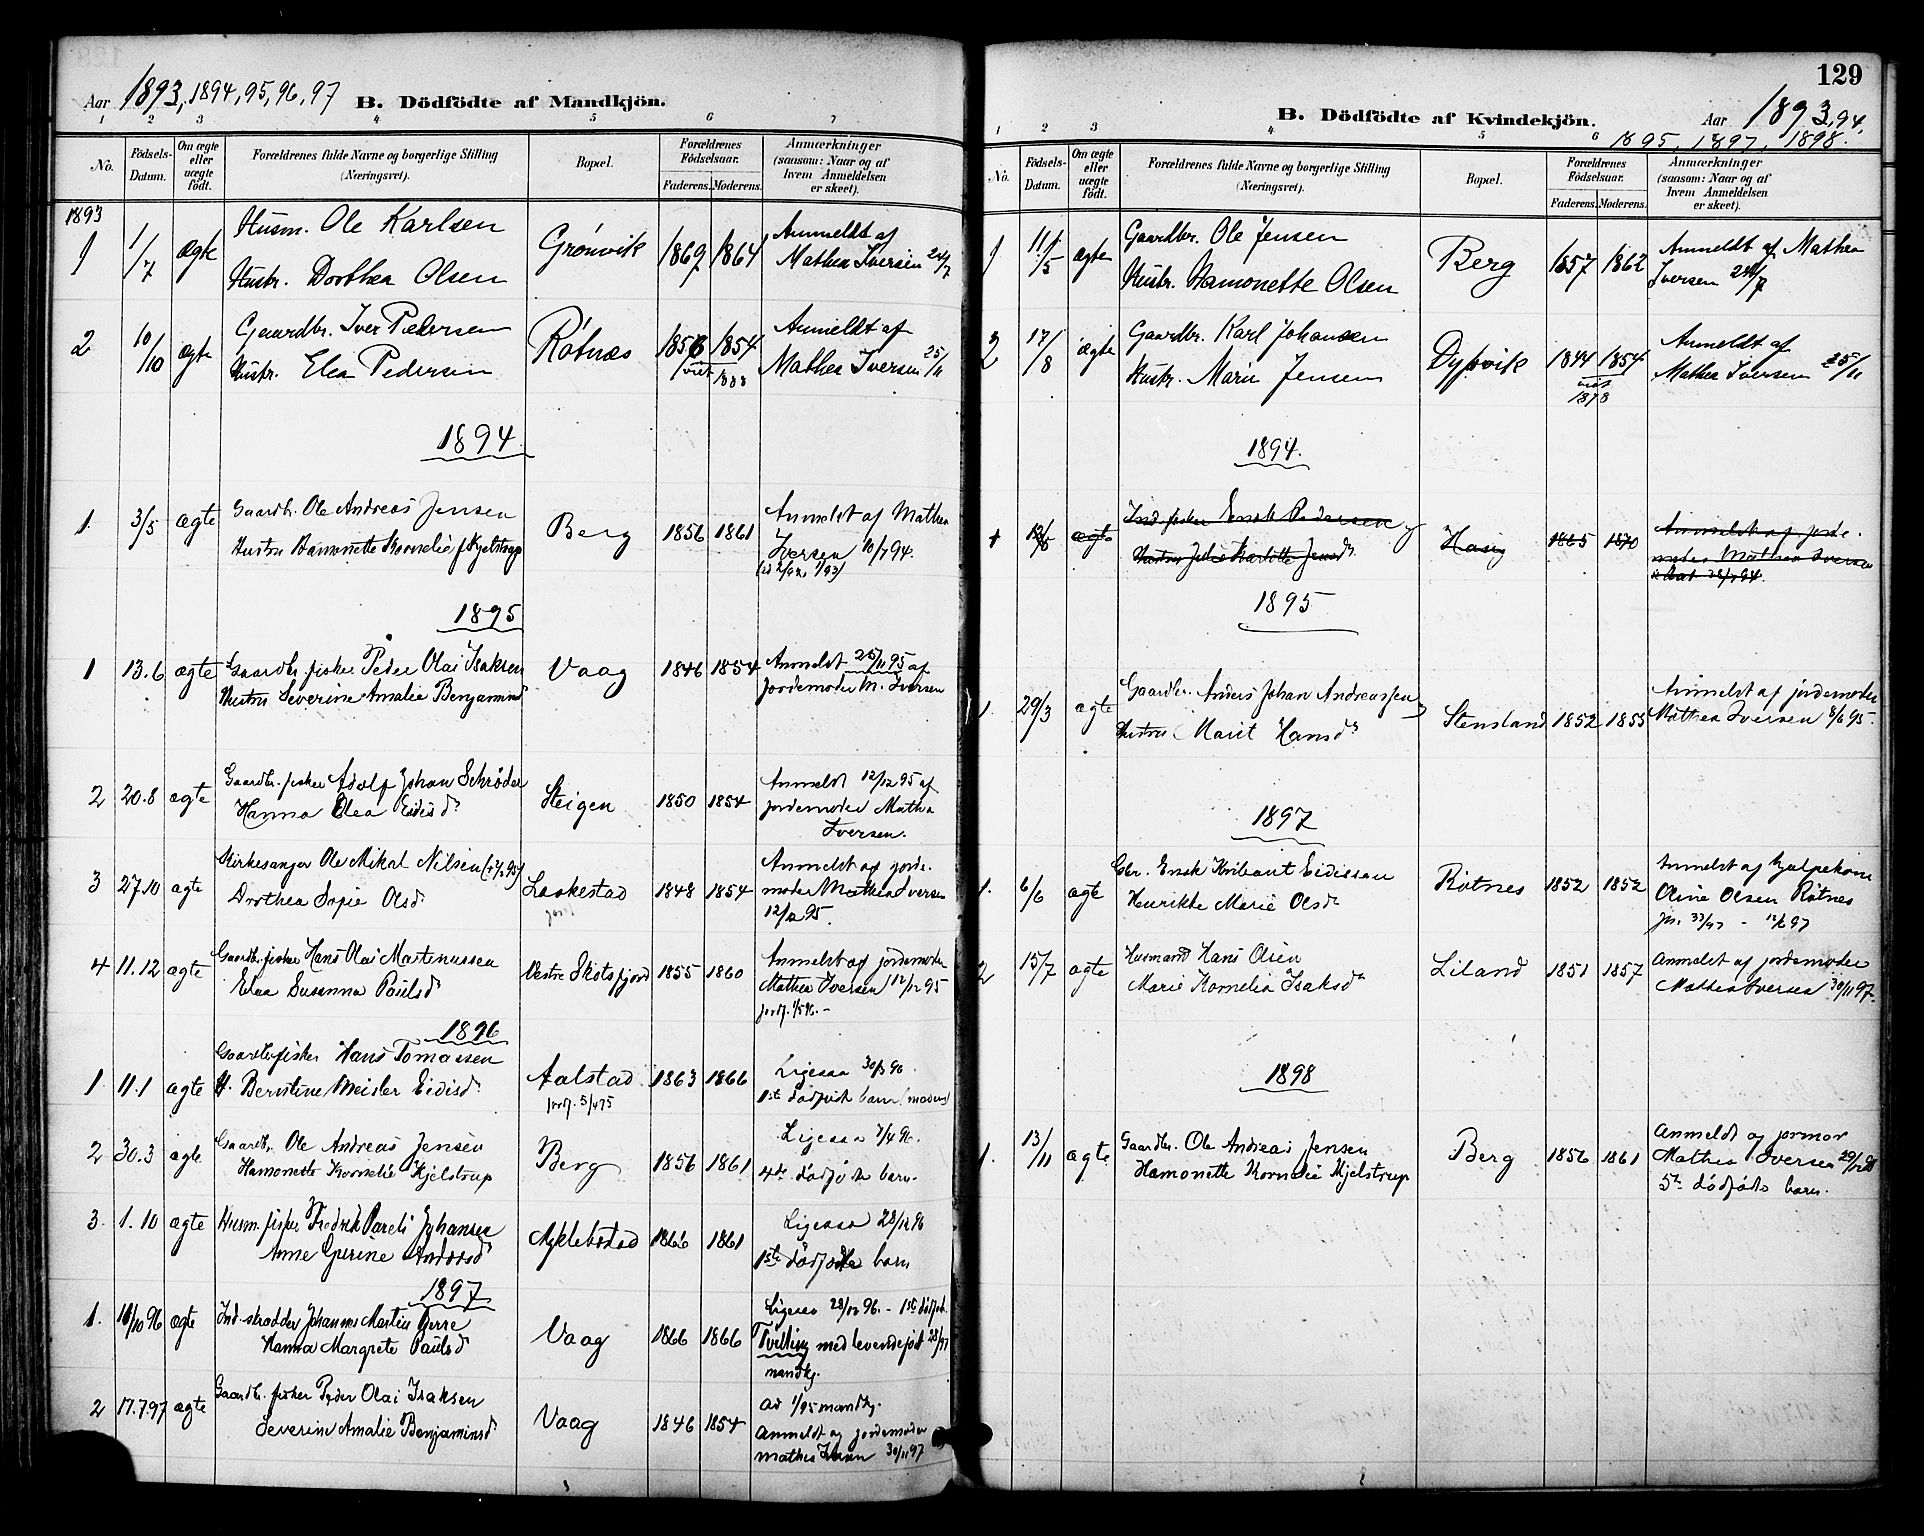 Aar 1893, 1894, 95, 96, 97 B. Dödfödte af Mandkjön.
1 2 3 4 5 6 7
No. Födsels-Datum. Om ægte eller uægte födt. Forældrenes fulde Navne og borgerlige Stilling (Næringsvei). Bopæl. Forældrenes Födselsaar. Faderens. Moderens. Anmærkninger (saasom: Naar og af hvem Anmeldelsen er skeet).
1893
1 1/7 ægte Husm. Ole Karlsen Grönvik 1869 1864 Anmeldt af
Hustr. Dorthea Olsen Mathea Iversen 24/7
2 10/10 ægte Gaardbr. Iver Pedersen Rötnæs 1856 1854 Anmeldt af
Hustr. Elea Pedersen viet 1888 Mathea Iversen 25/11
1894
1. 3/5 ægte Gaardb. Ole Andreas Jensen Berg 1856 1861 Anmeldt af Mathea
Hustru Hamonette Kornelie f. Kjelstrup Iversen 10/7 94.
1895
1 13.6 ægte Gaardb. fisker Peder Olai Isaksen Vaag 1846 1854 Anmeldt 25/11 95 af
Hustru Severine Amalie Benjaminsd Jordemoder M. Iversen
2 20.8 ægte Gaardb. fisker Adolf Johan Schrøder Steigen 1850 1854 Anmeldt 12/12 95 af
Hanna Olea Eidisd. jordemoder Mathea
Iversen.
3 27.10 ægte Kirkesanger Ole Mikal Nilsen Laskestad 1848 1854 Anmeldt af jorde-
Dorthea Sofie Olsd. moder Mathea Iversen
12/12 95.
4 11.12 ægte Gaardb. fisker Hans Olai Martinussen Vestre Skotsfjord 1855 1860 Anmeldt af jordemoder
Elea Susanna Paulsd. Mathea Iversen 12/12 95
1896
1 11.1 ægte Gaardb. fisker Hans Tomassen Aalstad 1863 1866 Ligesaa
H. Berntine Meisler Eidisd. 1ste dødfødte barn (moderens)
2 30.3 ægte Gaardb. Ole Andreas Jensen Berg 1856 1861 Ligesaa 7/4 96.
Hamonette Kornelie Kjelstrup 4de dødfødte barn.
3. 1.10 ægte Husm. fisker Fredrik Pareli Johansen 1866 1861 Ligesaa 28/12 96
Anne Gurine Andersd. 1ste dødfødte barn
1897
1. 16/10 96 ægte Ind. skrædder Johannes Martin Vaag 1866 1866 Ligesaa 28/12 96. - 1ste dødfødt.
Hanna Margrete Paulsd Tvilling med levendefødt
mandkj.
2 17.7.97 ægte Gaardb. fisker Peder Olai Isaksen Vaag 1846 1854 Cd 1/95 mandkj.
Severine Amalie Benjaminsd. Anmeldt af jordemoder
Mathea Iversen 30/11 97
129
B. Dödfödte af Kvindekjön. Aar 1893, 94,
1895, 1897, 1898.
1 2 3 4 5 6
No. Födsels-Datum. Om ægte eller uægte födt. Forældrenes fulde Navne og borgerlige Stilling (Næringsvei). Bopæl. Forældrenes Födselsaar. Faderens. Moderens. Anmærkninger (saasom: Naar og af hvem Anmeldelsen er skeet).
1 11/5 ægte Gaardbr. Ole Jensen Berg 1857 1862 Anmeldt af Mathea
Hustr. Hamonette Olsen Iversen 24/7
2 17/8 ægte Gaardbr. Karl Johansen Dypvik 1844 1854 Anmeldt af
Hustr. Marie Jensen viet 1878 Mathea Iversen 25/11
1894.
1 ægte Ind. fisker Enok Pedersen 1865 1870 Anmeldt af jorde-
Hustru Julie Karlotte Jensd. moder Mathea Iversen
1895
1. 29/3 ægte Gaardbr. Anders Johan Andreassen Stensland 1852 1855 Anmeldt af jordemoder
Hustru Marit Hansd. Mathea Iversen 8/6 95
1897
1. 6/6 ægte Gbr. Enok Eidissen Røtnes 1852 1852 Anmeldt af hjælpekone
Henrikke Marie Olsd. Oline Olsen Røtnes
2 15/7 ægte Husmand Hans Olsen Liland 1851 1857 Anmeldt af jordemoder
Marie Kornelia Isaksd. Mathea Iversen 30/11 97.
1898
1. 13/11 ægte Gaardbr. Ole Andreas Jensen Berg 1856 1861 Anmeldt af jormor
Hamonette Kornelie Kjelstrup Mathea Iversen
5te dødfødte barn.